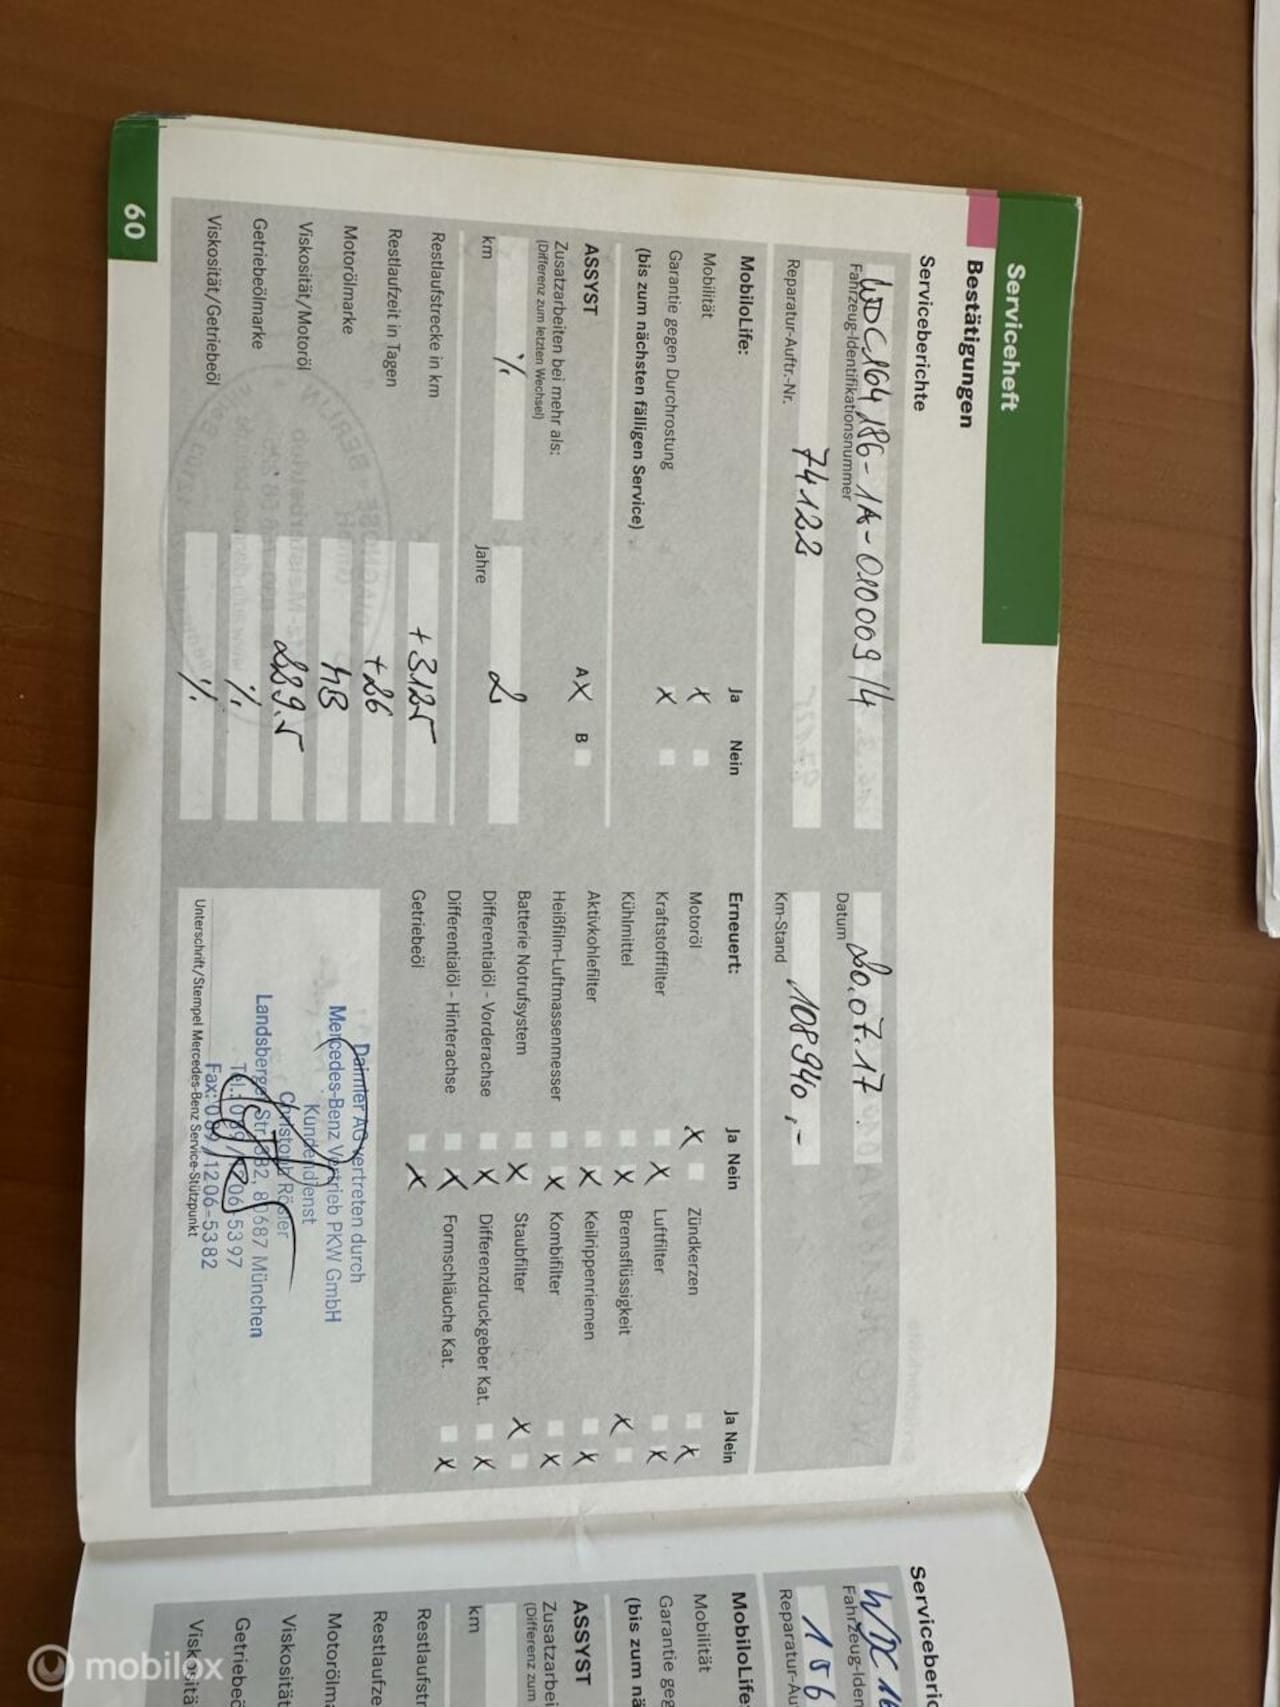 Serviceheft
Bestätigungen
Serviceberichte
WDC164186-1A-010009/4
Fahrzeug-Identifikationsnummer
20.07.17
Datum
74122
Reparatur-Auftr.-Nr.
108940,-
Km-Stand
MobiloLife:
Ja Nein
Mobilität X
Garantie gegen Durchrostung X
(bis zum nächsten fälligen Service)
ASSYST
A X B
Zusatzarbeiten bei mehr als:
(Differenz zum letzten Wechsel)
km %
Jahre 2
Restlaufstrecke in km +3125
Restlaufzeit in Tagen +26
Motorölmarke MB
Viskosität/Motoröl 229.5
Getriebeölmarke %
Viskosität/Getriebeöl %
Erneuert:
Ja Nein
Motoröl X
Kraftstofffilter X
Kühlmittel X
Aktivkohlefilter X
Heißfilm-Luftmassenmesser X
Batterie Notrufsystem X
Differentialöl - Vorderachse X
Differentialöl - Hinterachse X
Getriebeöl X
Ja Nein
Zündkerzen X
Luftfilter X
Bremsflüssigkeit X
Keilrippenriemen X
Kombifilter X
Staubfilter X
Differenzdruckgeber Kat. X
Formschläuche Kat. X
Daimler AG vertreten durch
Mercedes-Benz Vertrieb PKW GmbH
Kundendienst
Christoph Rösler
Landsberger Str. 382, 80687 München
Tel.: 089/1206-5397
Fax: 089/1206-5382
Unterschrift/Stempel Mercedes-Benz Service-Stützpunkt
60
Serviceberic
WDC16
Fahrzeug-Iden
156
Reparatur-Au
MobiloLife:
Mobilität
Garantie geg
(bis zum nä
ASSYST
Zusatzarbei
(Differenz zum
km
Restlaufstr
Restlaufze
Motorölma
Viskosität
Getriebeö
Viskositä
mobilox